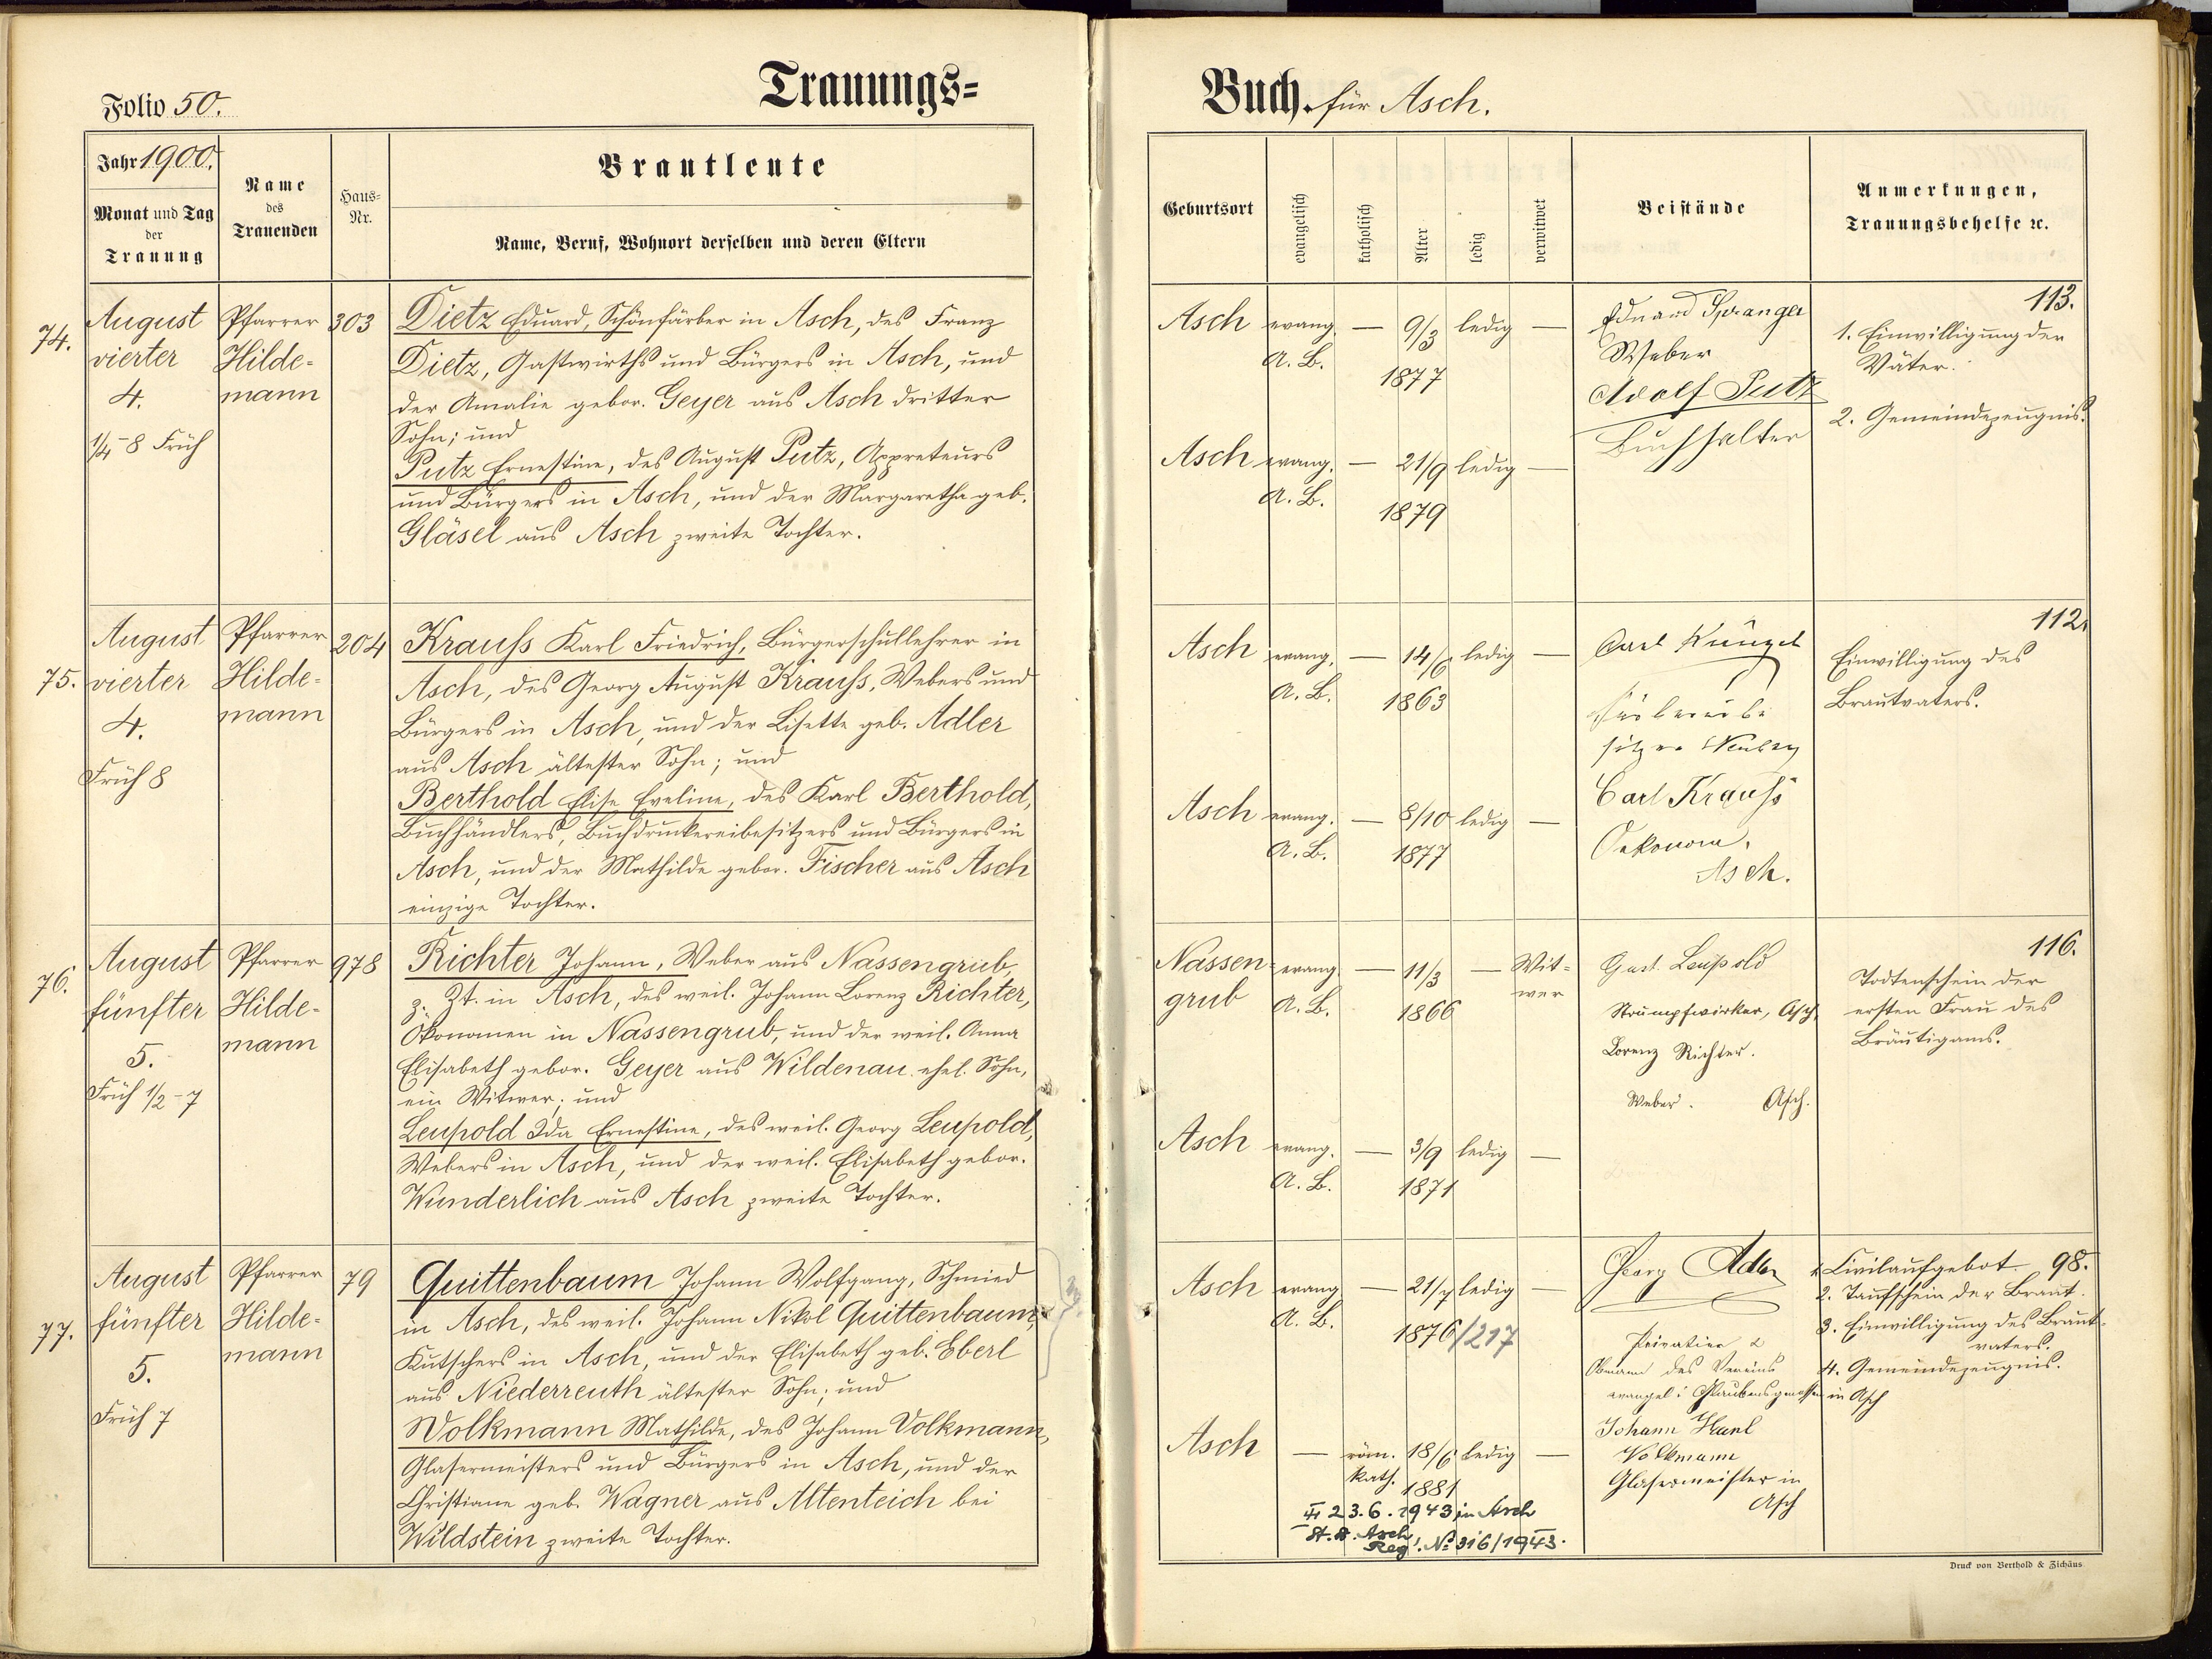 Trauungs=
Folio 50.
Jahr 1900.
Monat und Tag
der
Trauung
Name
des
Trauenden
Haus=
Nr.
Brautleute
Name, Beruf, Wohnort derselben und deren Eltern
74.
August
vierter
4.
1/4-8 Früh
Pfarrer
Hilde-
mann
303
Dietz Eduard, Schönfärber in Asch, des Franz
Dietz, Gastwirths und Bürgers in Asch, und
der Amalie gebor. Geyer aus Asch dritter
Sohn; und
Putz Ernestine, des August Putz, Appreteurs
und Bürgers in Asch, und der Margaretha geb.
Gläsel aus Asch zweite Tochter.
75.
August
vierter
4.
Früh 8
Pfarrer
Hilde-
mann
204
Krauss Karl Friedrich, Bürgerschullehrer in
Asch, des Georg August Krauss, Webers und
Bürgers in Asch, und der Lisette geb. Adler
aus Asch ältester Sohn; und
Berthold Elise Eveline, des Karl Berthold,
Buchhändlers, Buchdruckereibesitzers und Bürgers in
Asch, und der Mathilde gebor. Fischer aus Asch
einzige Tochter.
76.
August
fünfter
5.
Früh 1/2-7
Pfarrer
Hilde-
mann
978
Richter Johann, Weber aus Nassengrub,
z. Zt. in Asch, des weil. Johann Lorenz Richter,
Ökonomen in Nassengrub, und der weil. Anna
Elisabeth gebor. Geyer aus Wildenau ehel. Sohn,
ein Witwer; und
Leupold Ida Ernestine, des weil. Georg Leupold,
Webers in Asch, und der weil. Elisabeth gebor.
Wunderlich aus Asch zweite Tochter.
77.
August
fünfter
5.
Früh 7
Pfarrer
Hilde-
mann
79
Quittenbaum Johann Wolfgang, Schmied
in Asch, des weil. Johann Nikol Quittenbaum,
Kutschers in Asch, und der Elisabeth geb. Eberl
aus Niederreuth ältester Sohn; und
Volkmann Mathilde, des Johann Volkmann,
Glasermeisters und Bürgers in Asch, und der
Christiane geb. Wagner aus Altenteich bei
Wildstein zweite Tochter.
Buch. für Asch.
Geburtsort
evangelisch
katholisch
Alter
ledig
verwitwet
Beistände
Anmerkungen,
Trauungsbehelfe ꝛc.
Asch evang. — 9/3 ledig —
A. B. 1877
Asch evang. — 21/9 ledig —
A. B. 1879
Eduard Spranger
Weber
Adolf Putz
Buchhalter
113.
1. Einwilligung der
Väter.
2. Gemeindezeugnis.
Asch evang. — 14/6 ledig —
A. B. 1863
Asch evang. — 8/10 ledig —
A. B. 1877
Carl Künzel
Carl Krauss
Oekonom,
Asch.
112.
Einwilligung des
Brautvaters.
Nassen= evang. — 11/3 — Wit=
grub A. B. 1866 wer
Asch evang. — 3/9 ledig —
A. B. 1871
Gust. Leupold
Strumpfwirker, Asch,
Lorenz Richter.
Weber. Asch.
116.
Todtenschein der
ersten Frau des
Bräutigams.
Asch evang — 21/7 ledig —
A. B. 1876/217
Asch — röm. 18/6 ledig —
kath. 1881
23.6.1943 in Asch
St. A. Asch
Reg. № 316/1943.
Georg Adler
Privatier &
Obmann des Vereins
evangel. Glaubensgenossen in Asch
Johann Karl
Volkmann
Glasermeister in
Asch
1. Civilaufgebot 98.
2. Taufschein der Braut.
3. Einwilligung des Braut-
vaters.
4. Gemeindezeugnis.
Druck von Berthold & Zichäus